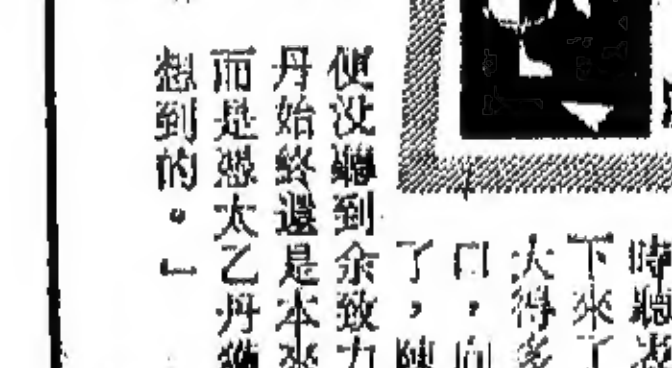 時聽
下來了
大得多
口，向
了，陳
便没聽到余致力
丹始終還是本來
而是憑太乙丹
想到的。」